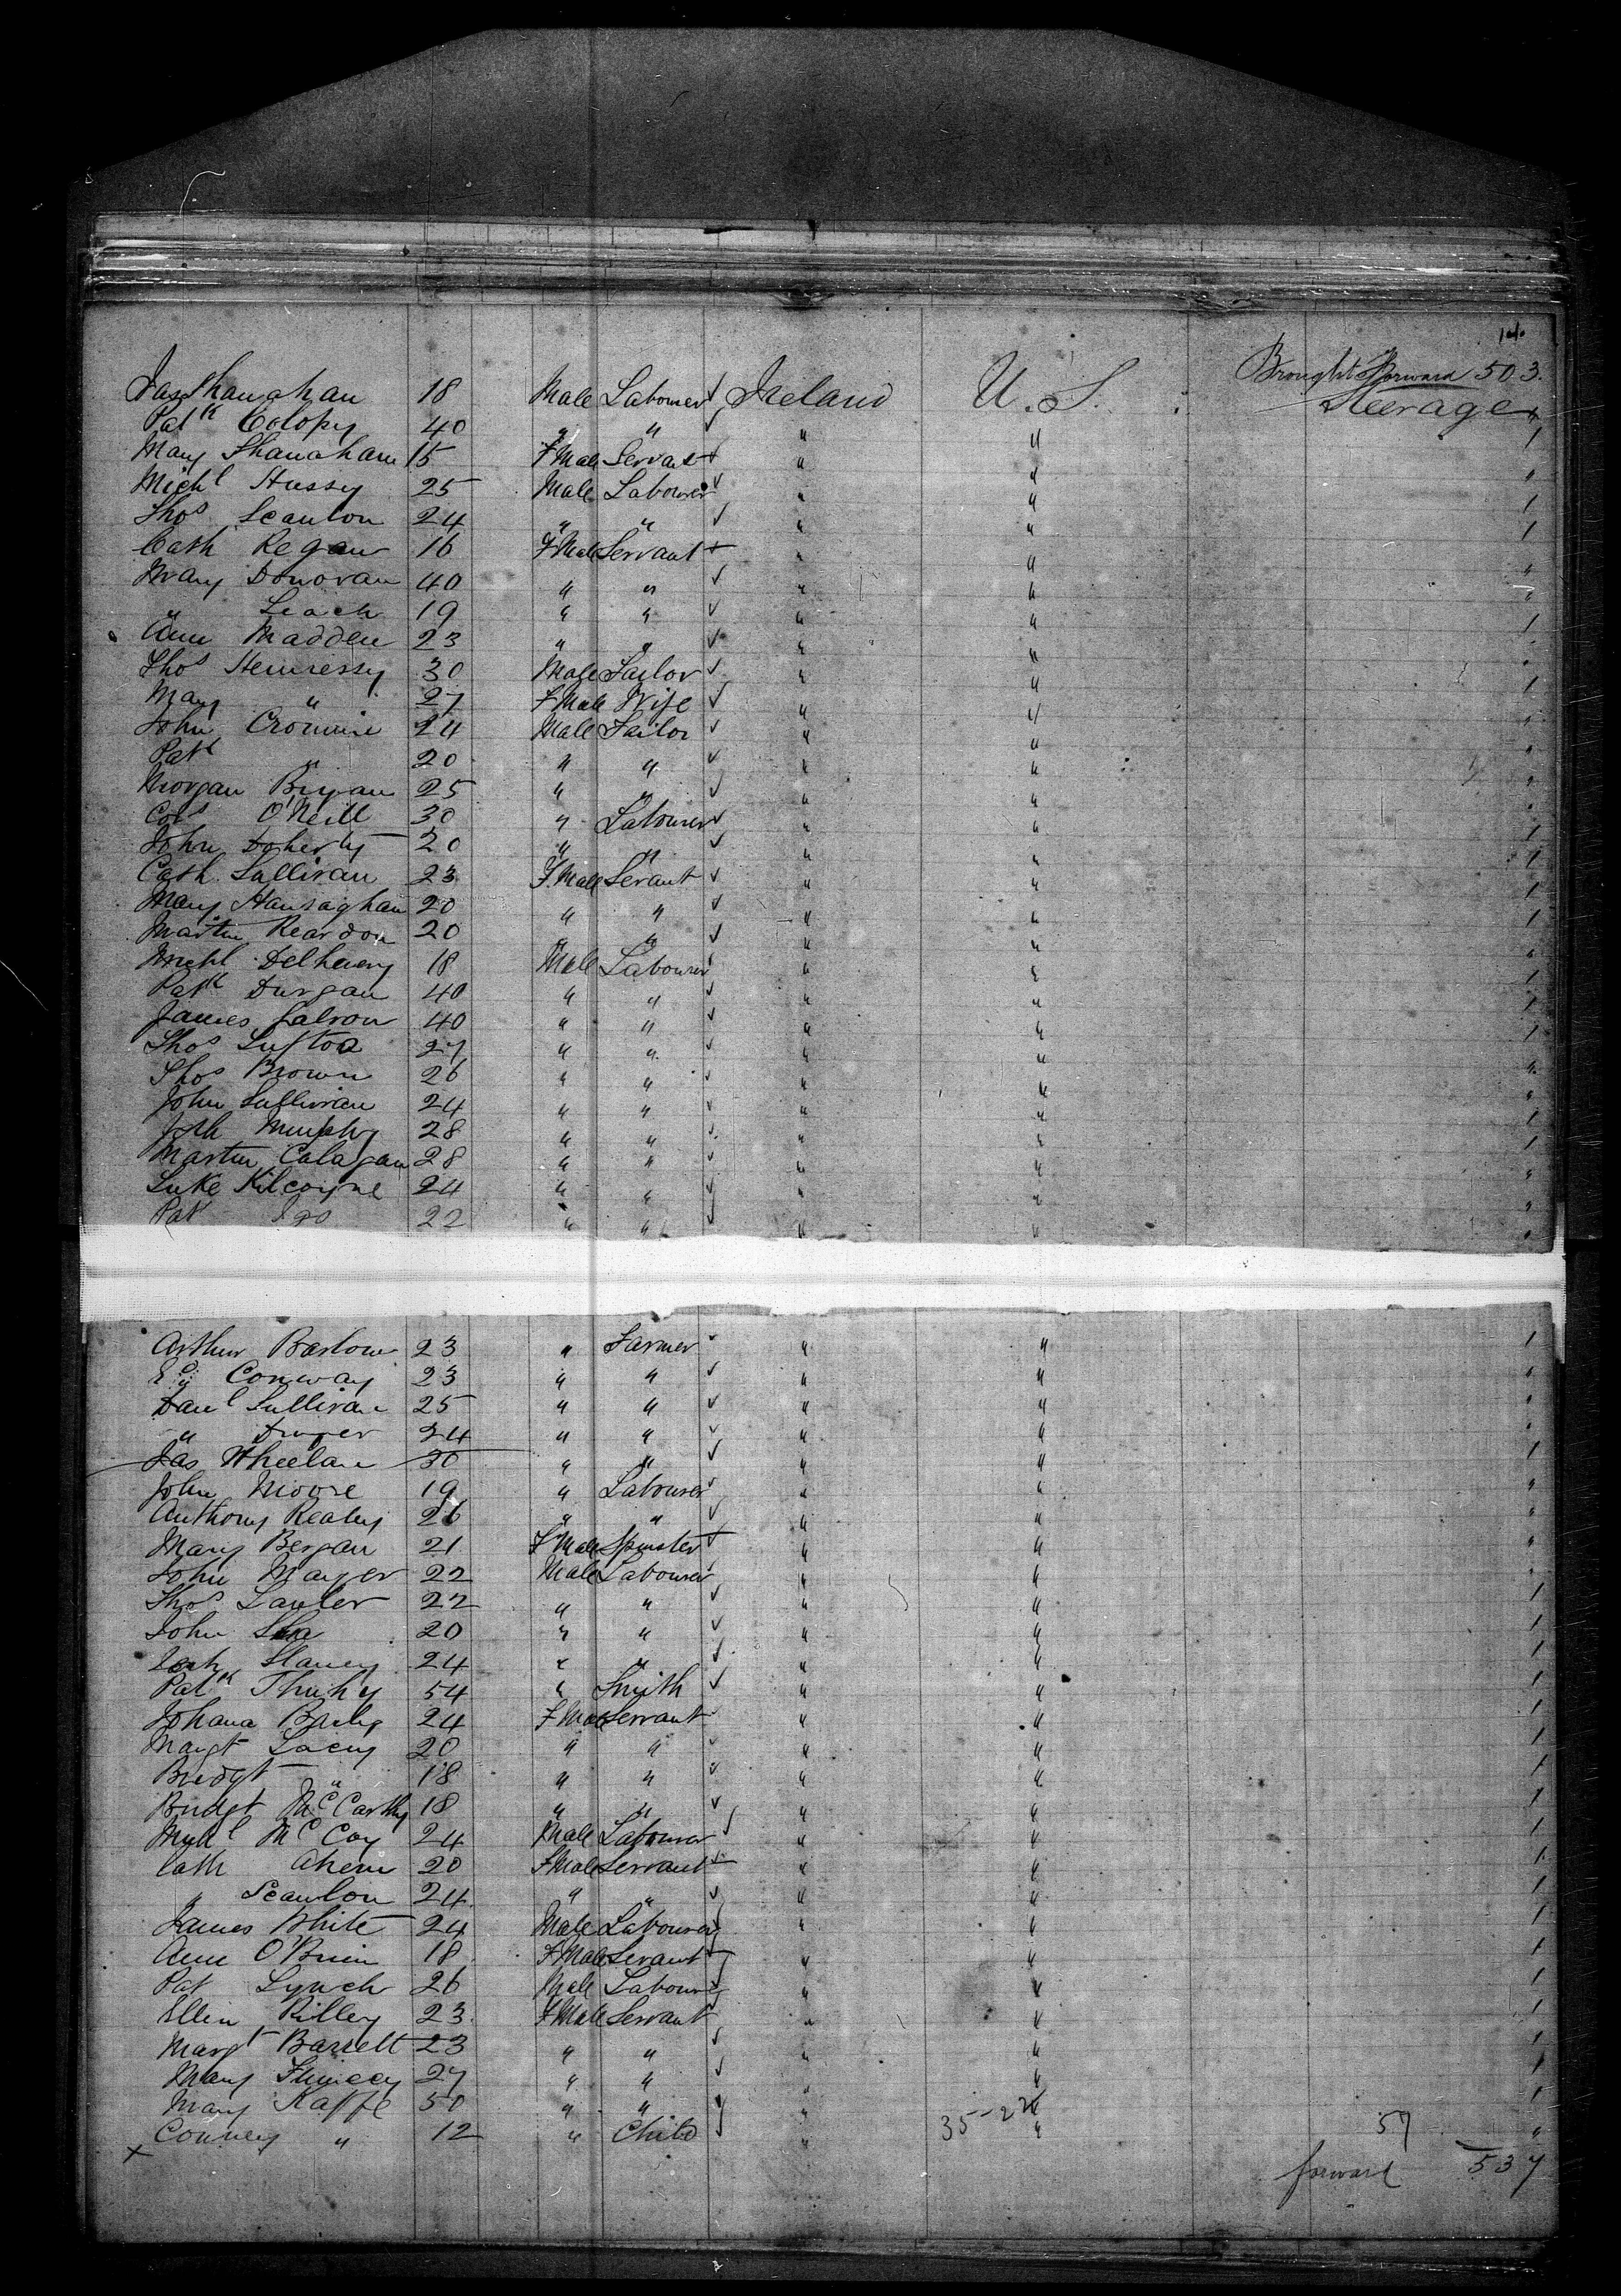 14.
Brought Forward 503.
Jas Shanaghan 18 Male Labourer Ireland U. S. Steerage
Patk Colopy 40 " " " " 1
Mary Shanahan 15 F Male Servant " " "
Michl Hussy 25 Male Labourer " " 1
Thos Scanlon 24 " " " " 1
Cath Regan 16 F Male Servant " " "
Mary Donovan 40 " " " " "
" Leach 19 " " " " 1
Ann Madden 23 " " " " "
Thos Hennessy 30 Male Tailor " " 1
Mary " 27 F Male Wife " " "
John Cronnin 24 Male Tailor " " "
Patk " 20 " " " " "
Morgan Bryan 25 " " " " "
Cors O'Neill 30 " Labourer " " 1
John Doherty 20 " " " " 1
Cath Sullivan 23 F. Male Servant " " 1
Mary Hanraghan 20 " " " " 1
Martin Reardon 20 " " " " "
Michl Delheuny 18 Male Labourer " " 1
Patk Durgan 40 " " " " 1
James Galvon 40 " " " " 1
Thos Lufton 27 " " " " "
Thos Brown 26 " " " " "
John Sullivan 24 " " " " 1
Murphy 28 " " " " 1
Martin Calagan 28 " " " " "
Luke Kilcoyne 24 " " " " "
Pat 22 " " " " "
Arthur Barlow 23 " Farmer " " 1
Conway 23 " " " " "
Danl Sullivan 25 " " " " "
" Dwyer 24 " " " " 1
Jas Wheelan 30 " " " "
John Moore 19 " Labourer " " "
Anthony Reaby 26 " " " " "
Mary Bergan 21 F Male Spinster " " "
John Mayer 22 Male Labourer " " "
Thos Lawler 22 " " " " 1
John Shea 20 " " " " 1
Slaney 24 " " " " 1
Patk 54 " Smith " " 1
Johana 24 F Male Servant " " 1
Margt Lacey 20 " " " " 1
Bridgt " 18 " " " " 1
Bridgt McCarthy 18 " " " " 1
Michl McCoy 24 Male Labourer " " 1
Cath Ahern 20 F Male Servant " " 1
" Scanlon 24 " " " " 1
James White 24 Male Labourer " " 1
Ann O'Brien 18 F Male Servant " " 1
Pat Lynch 26 Male Labourer " " 1
Ellen Rilley 23 F Male Servant " " 1
Margt Barrett 23 " " " " 1
Mary 27 " " " " 1
Mary Kaffe 50 " " " " 1
" 12 " Child " 35-22 " 57 "
forward 537